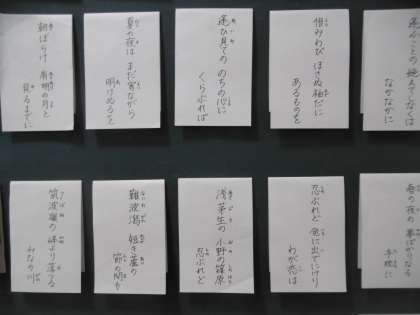 逢ふことの 絶えてしなくは
なかなかに
恨みわび ほさぬ袖だに
あるものを
逢ひ見ての のちの心に
くらぶれば
夏の夜は まだ宵ながら
明けぬるを
朝ぼらけ 有明の月と
見るまでに
春の夜の 夢ばかりなる
手枕に
忍ぶれど 色に出でにけり
わが恋は
浅茅生の 小野の篠原
忍ぶれど
難波潟 短き蘆の
節の間も
筑波嶺の 峰より落つる
みなの川